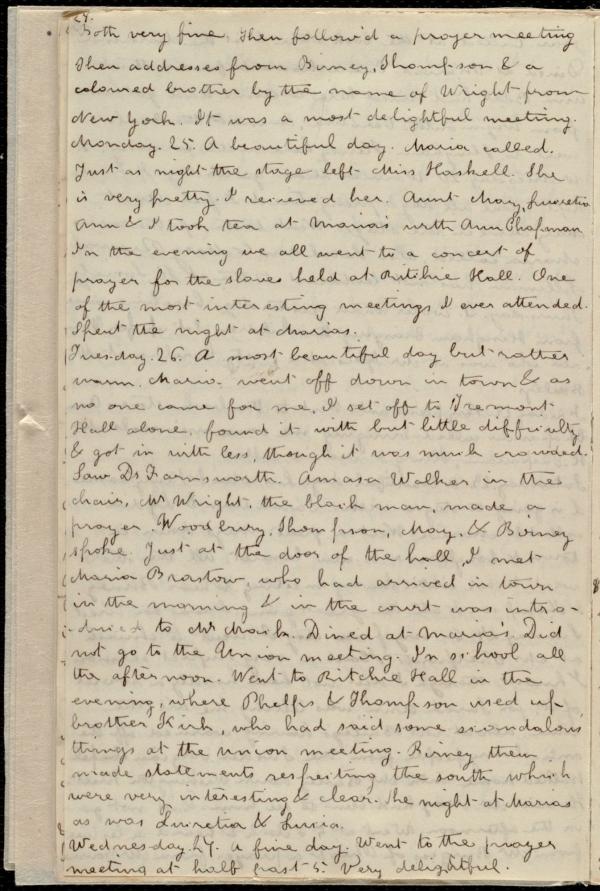 29.
Both very fine. Then follow'd a prayer meeting
Then addresses from Birney, Thompson & a
coloured brother by the name of Wright from
New York. It was a most delightful meeting.
Monday. 25. A beautiful day. Maria called.
Just as night the stage left Miss Haskell. She
is very pretty. I recieved her. Aunt Mary, Lucretia
Ann & I took tea at Maria's with Ann Chapman
In the evening we all went to a concert of
prayer for the slaves held at Ritchie Hall. One
of the most interesting meetings I ever attended.
Spent the night at Marias.
Tuesday. 26. A most beautiful day but rather
warm. Maria went off down in town & as
no one came for me, I set off to Tremont
Hall alone, found it with but little difficulty
& got in with less, though it was much crowded.
Saw Dr Farnsworth. Amasa Walker in the
chair, Mr Wright, the black man, made a
prayer. Woodbury, Thompson, May, & Birney
spoke. Just at the door of the hall, I met
Maria Brastow, who had arrived in town
in the morning & in the court was intro-
duced to Mr Dined at Maria's. Did
not go to the Union meeting. In school all
the afternoon. Went to Ritchie Hall in the
evening, where Phelps & Thompson used up
brother Kirk, who had said some scandalous
things at the union meeting. Birney then
made statements respecting the south which
were very interesting & clear. The night at Marias
as was Lucretia & Lucia.
Wednesday. 27. A fine day. Went to the prayer
meeting at half past 5. Very delightful.